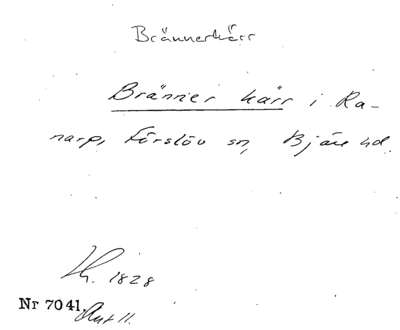 Brännerkärr
Bränner kärr i Ra-
narp, Förslöv sn, Bjäre hd.
Lh. 1828
Nr 7041, Akt 11.